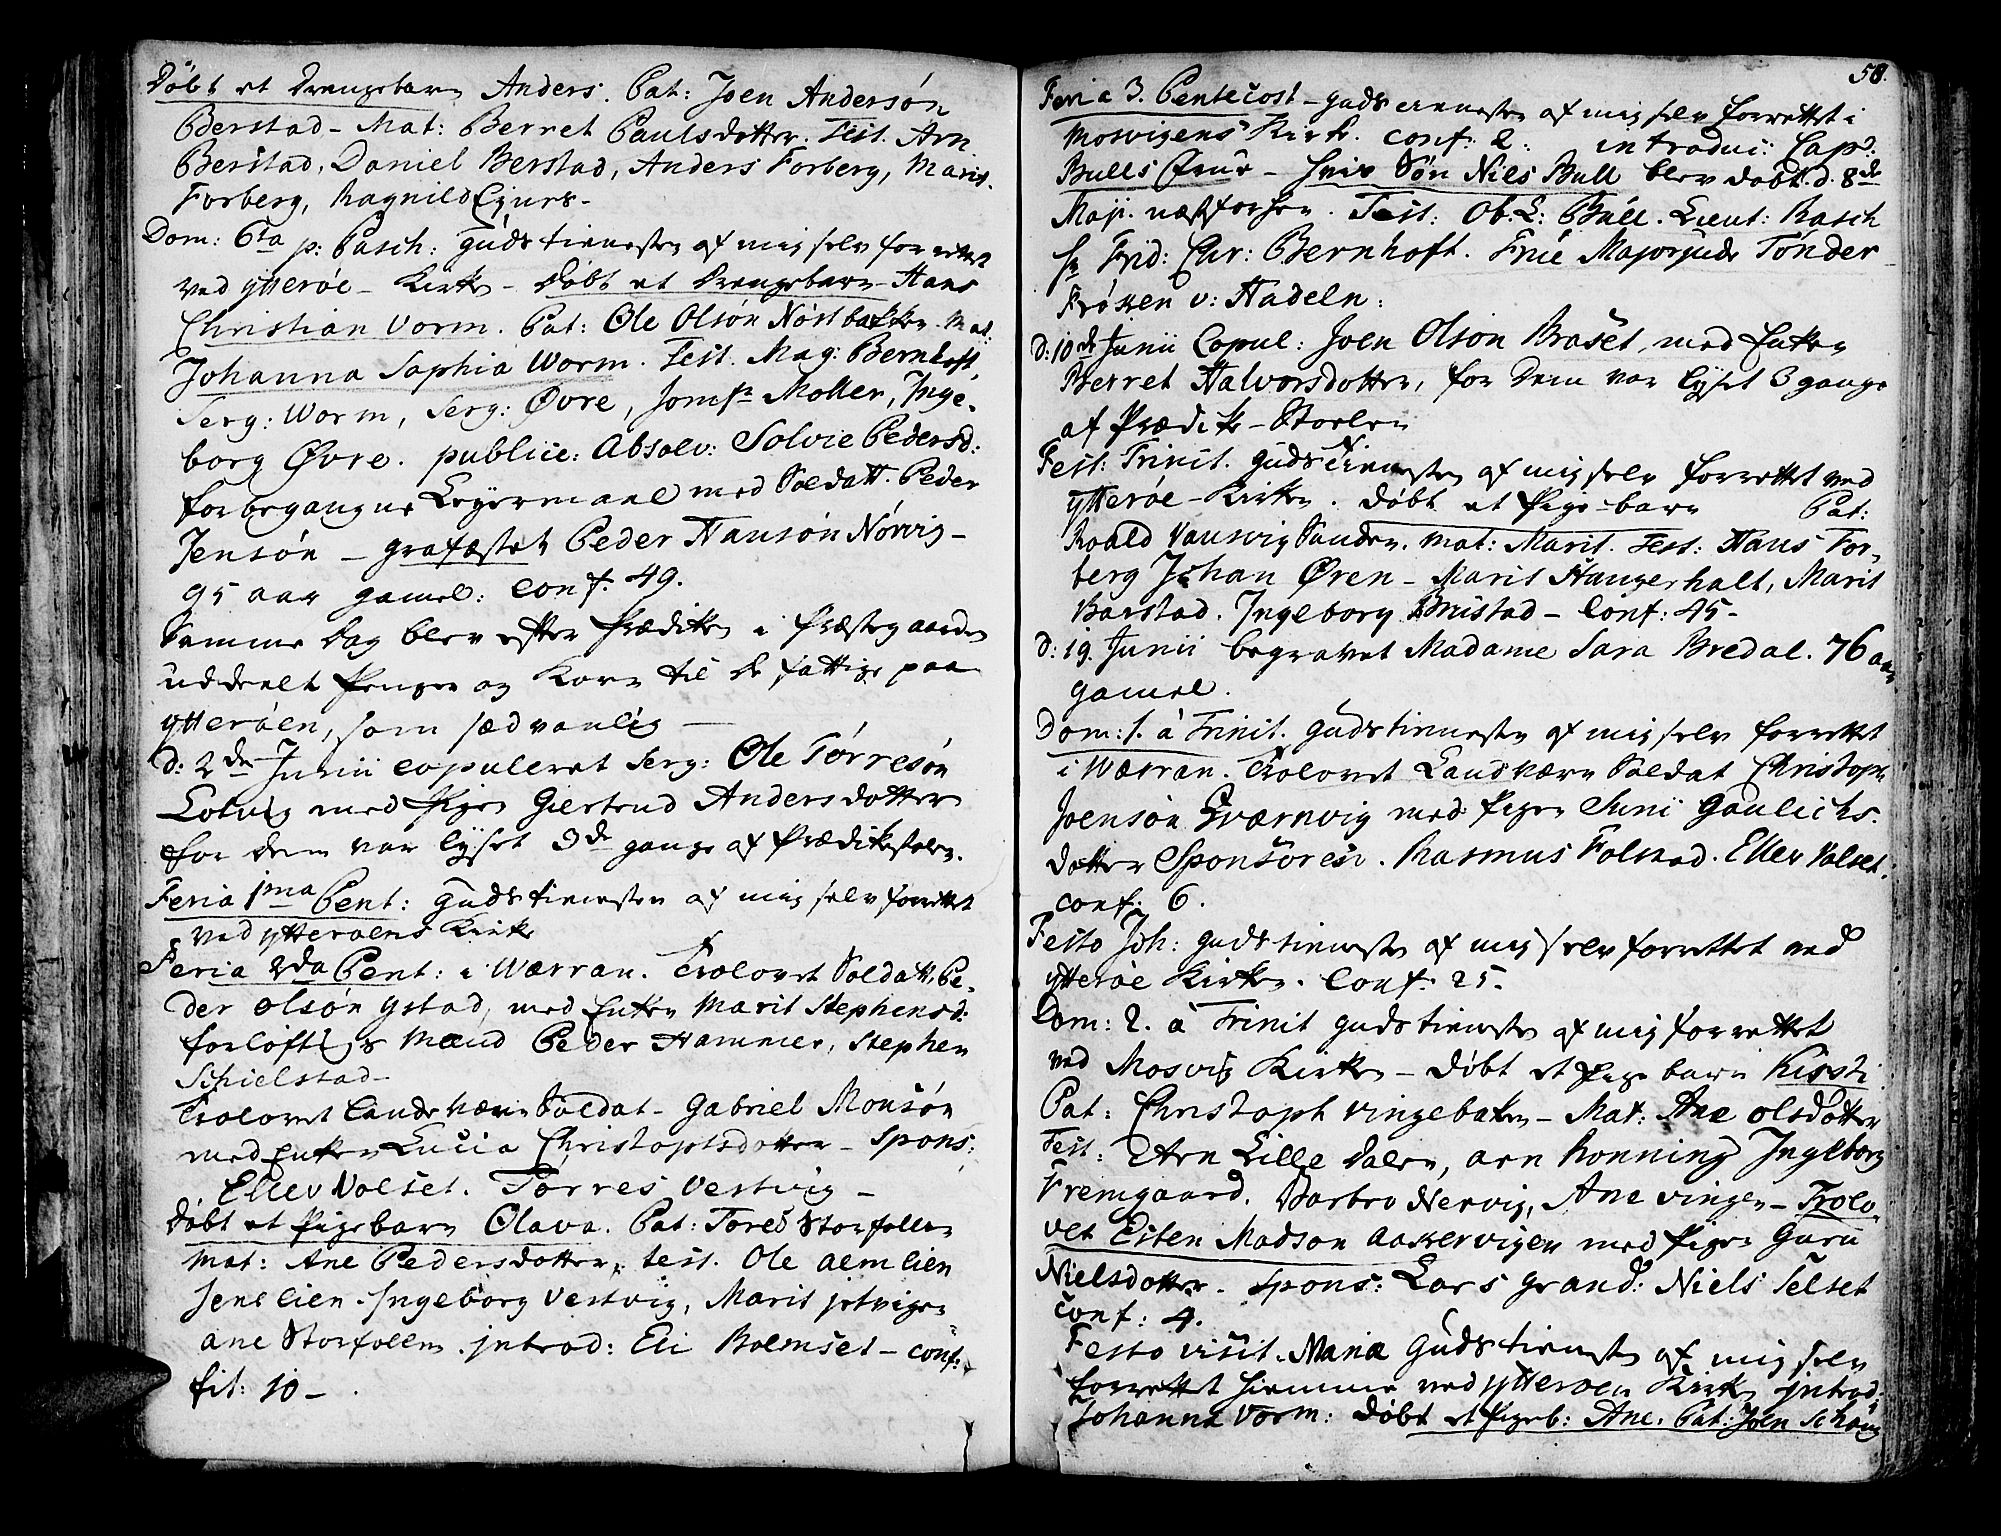 Døbt et Drengebarn Anders. Pat: Joen Andersøn
Berstad - Mat: Berret Paulsdotter. Test. Arn
Berstad, Daniel Berstad, Anders Forberg, Marit
Forberg, Ragnild
Dom: 6ta p: Pasch: Guds tienesten af mig selv forrettet
ved ytterøe - Kirke - Døbt et Drengebarn Hans
Christian Vorm. Pat: Ole Olsøn Nøstbakken. Mat:
Johanna Saphia Worm. Test. Mag: Bernhoft
Serg: Worm, Serg: Øvre, Jomfr Moller, Inge-
borg Øvre. publice: Absolv: Solvie Pedersd:
for begangne Leyermaal med Soldatt. Peder
Jensøn - grafæstet Peder Hansøn Nørvig -
95 aar gamel: Conf. 49.
Samme Dag blev efter Prædiken i Præstegaarden
uddeelt Penger og Korn til de fattige paa
ytterøen, som sædvanlig -
d: 2den Junii copuleret Serg: Ole Tørresøn
Lotvig med Pigen Giertrud Andersdotter
for dem var lyset 3de gange af Prædikestolen.
Feria 1ma Pent: Guds tienesten af mig selv forrettet
ved ytterøens Kirke
Feria 2da Pent: i Wærran. Trolovet Soldatt. Pe-
der Olsøn ystad, med Enken Marit Stephensd:
forløftigs Mænd Peder Hammer, Stephen
Schielstad -
Trolovet Landeværn Soldat - Gabriel Monsøn
med Enken Lucia Christophsdotter - Spons:
Ellev Volset. Torres Vestvig -
Døbt et Pigebarn Olava. Pat: Tores Storfollen
Mat: Ane Pedersdotter, test. Ole aemlien
Jens lien. Ingeborg Vestvig, Marit jetvigen
ane Storfollen. jntrod: Eli Bolmset - conf:
fit: 10 -
58.
Feria 3. Pentecost - Guds tienesten af mig selv forrettet i
Mosvigens Kirke. Conf: 2. introdui: Cap:
Bulls Frue - hvis Søn Niels Bull blev døbt d. 8de
Maji. næstforhen. Test: Ob. L: Bull. Lieut: Rasch
hr Frid: Chr: Bernhoft. Frue Majorjnde Tønder
Frøken v: Hadeln.
d: 10de Junii Copul: Joen Olson Braset, med Enken
Berret Halvorsdotter, for Dem var lyset 3 gange
af Prædike-Stoelen
Fest: Trinit. Guds tienesten af mig selv forrettet ved
ytterøe - Kirke. Døbt et Pige-barn Pat:
Roald Vansvig Sanden. Mat: Marit. Test: Hans For-
berg Johan Øren - Marit Hangerhalt, Marit
Barstad. Ingeborg Bristad - Conf: 45 -
d: 19. Junii begravet Madame Sara Bredal. 76 aar
gamel.
Dom: 1. à Trinit. Gudstienesten af mig selv forrettet
i Wærran. Trolovet Landværn Soldat Christoph
Joensøn Qværnvig med Pigen Sunni Gaulichs-
dotter Sponsores. Rasmus Folstad. Ellev Volset.
conf: 6.
Festo Joh: Guds tieneste af mig selv forrettet ved
ytterøe Kirke. Conf. 25.
Dom: 2. à Trinit Guds tieneste af mig forrettet
ved Mosvig Kirke - Døbt et Pige barn Kisti.
Pat: Christoph Vingebaken - Mat: Ane Olsdotter
Test: Arn Lille dalen, arn Ronning Ingeborg
Fremgaard. Barbro Nervig, Ane Vingen - Trolo-
vet Esten Madson Aakervigen med Pigen Guru
Nielsdotter. Spons: Lars Grand: Niels Selset
Conf: 4.
Festo visit. Mariæ Guds tieneste af mig selv
forrettet hiemme ved ytterøen Kirke jntrod:
Johanna Vorm: Døbt et Pigeb: Ane. Pat: Joen Schaug